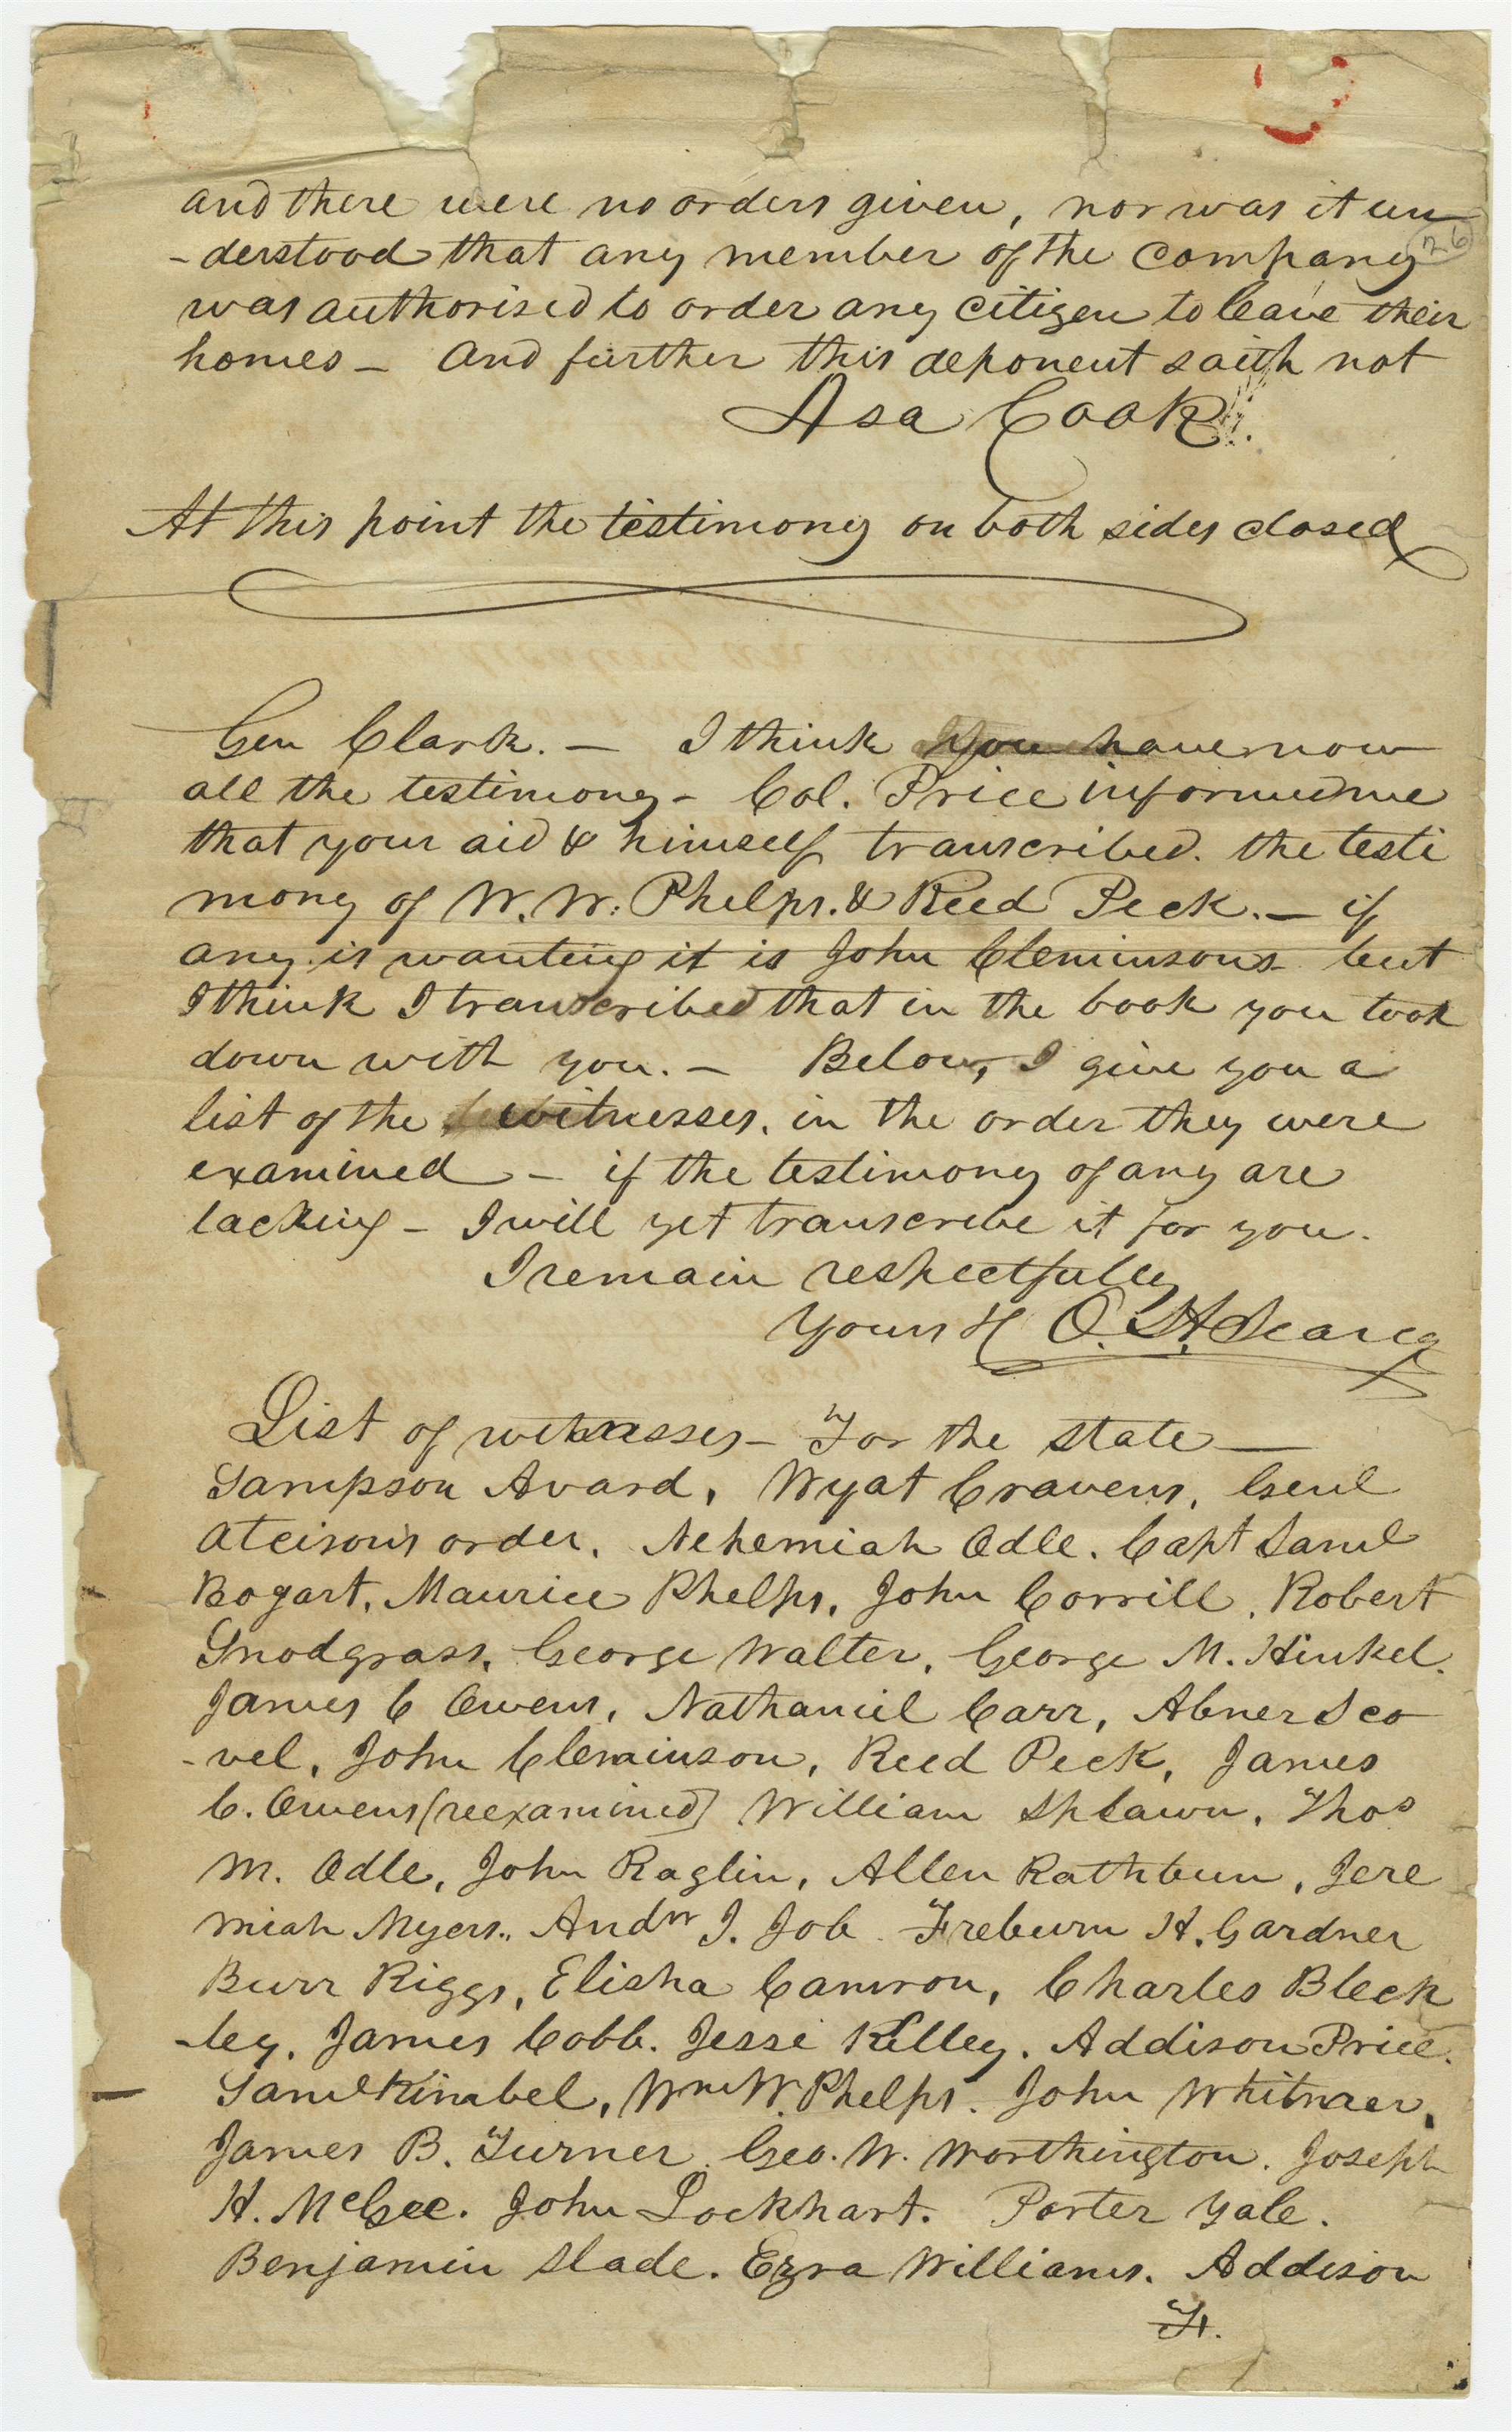 and there were no orders given, nor was it un
26
-derstood that any member of the company
was authorised to order any citizen to leave their
homes — And further this deponent saith not
Asa Cook
At this point the testimony on both sides closed
Gen Clark. — I think you have now
all the testimony - Col. Price informed me
that your aid & himself transcribed. the testi
mony of W. W. Phelps. & Reed Peck. — if
any is wanting it is John Cleminsons - but
I think I transcribed that in the book you took
down with you. — Below, I give you a
list of the witnesses, in the order they were
examined — if the testimony of any are
lacking — I will yet transcribe it for you.
I remain respectfully
Yours &c O. H. Searcy
List of witnesses - For the state —
Sampson Avard, Wyat Cravens, Genl
Atcison's order, Nehemiah Odle. Capt Saml
Bogart, Maurice Phelps, John Corrill, Robert
Snodgrass, George Walter, George M. Hinkel.
James C Owens, Nathaniel Carr, Abner Sco
-vel, John Cleminson, Reed Peck, James
C. Owens (reexamined) William Splawn, Thos
M. Odle, John Raglin, Allen Rathbun, Jere
miah Myers., Andw J. Job. Freburn H. Gardner
Burr Riggs, Elisha Camron, Charles Bleck
-ley. James Cobb. Jesse Kelley. Addison Price.
Saml Kimbel, Wm W. Phelps. John Whitmer,
James B. Turner. Geo. W. Worthington. Joseph
H. McGee. John Lockhart. Porter Yale.
Benjamin Slade. Ezra Williams. Addison
F.